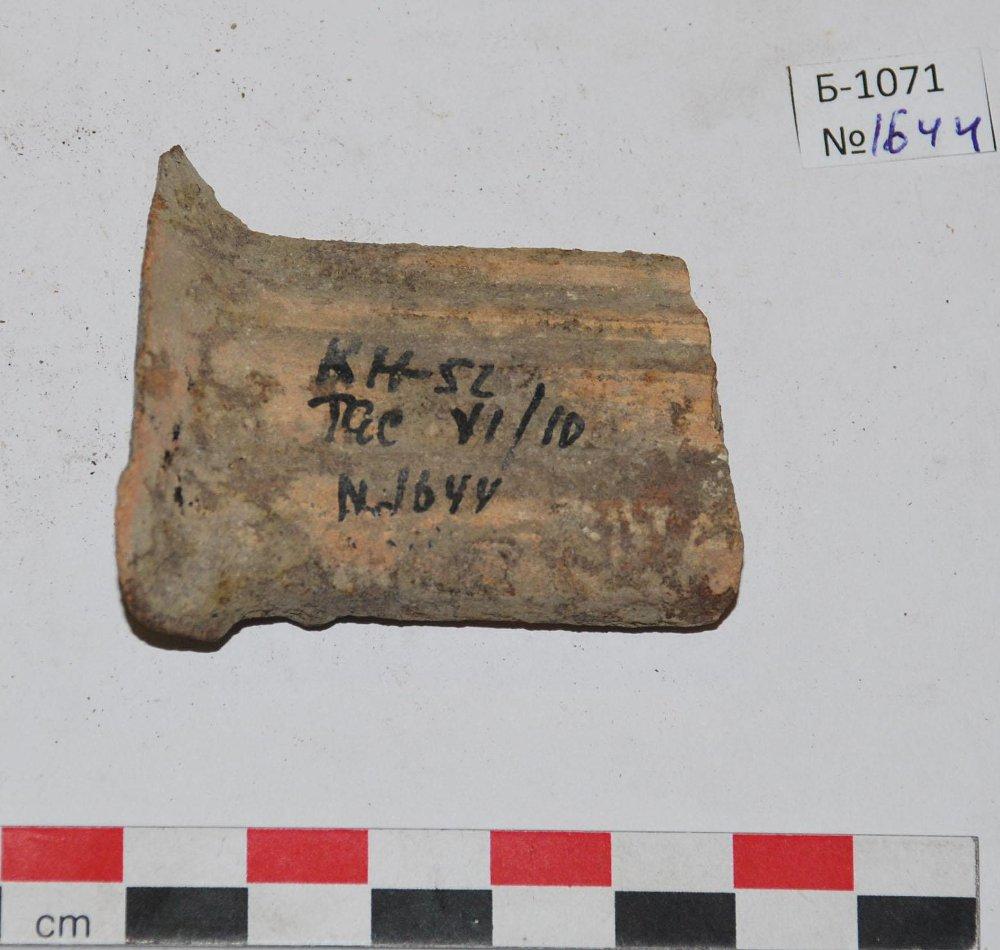 Б-1071
№1644
КН-52
Тас VI/10
N1644
cm